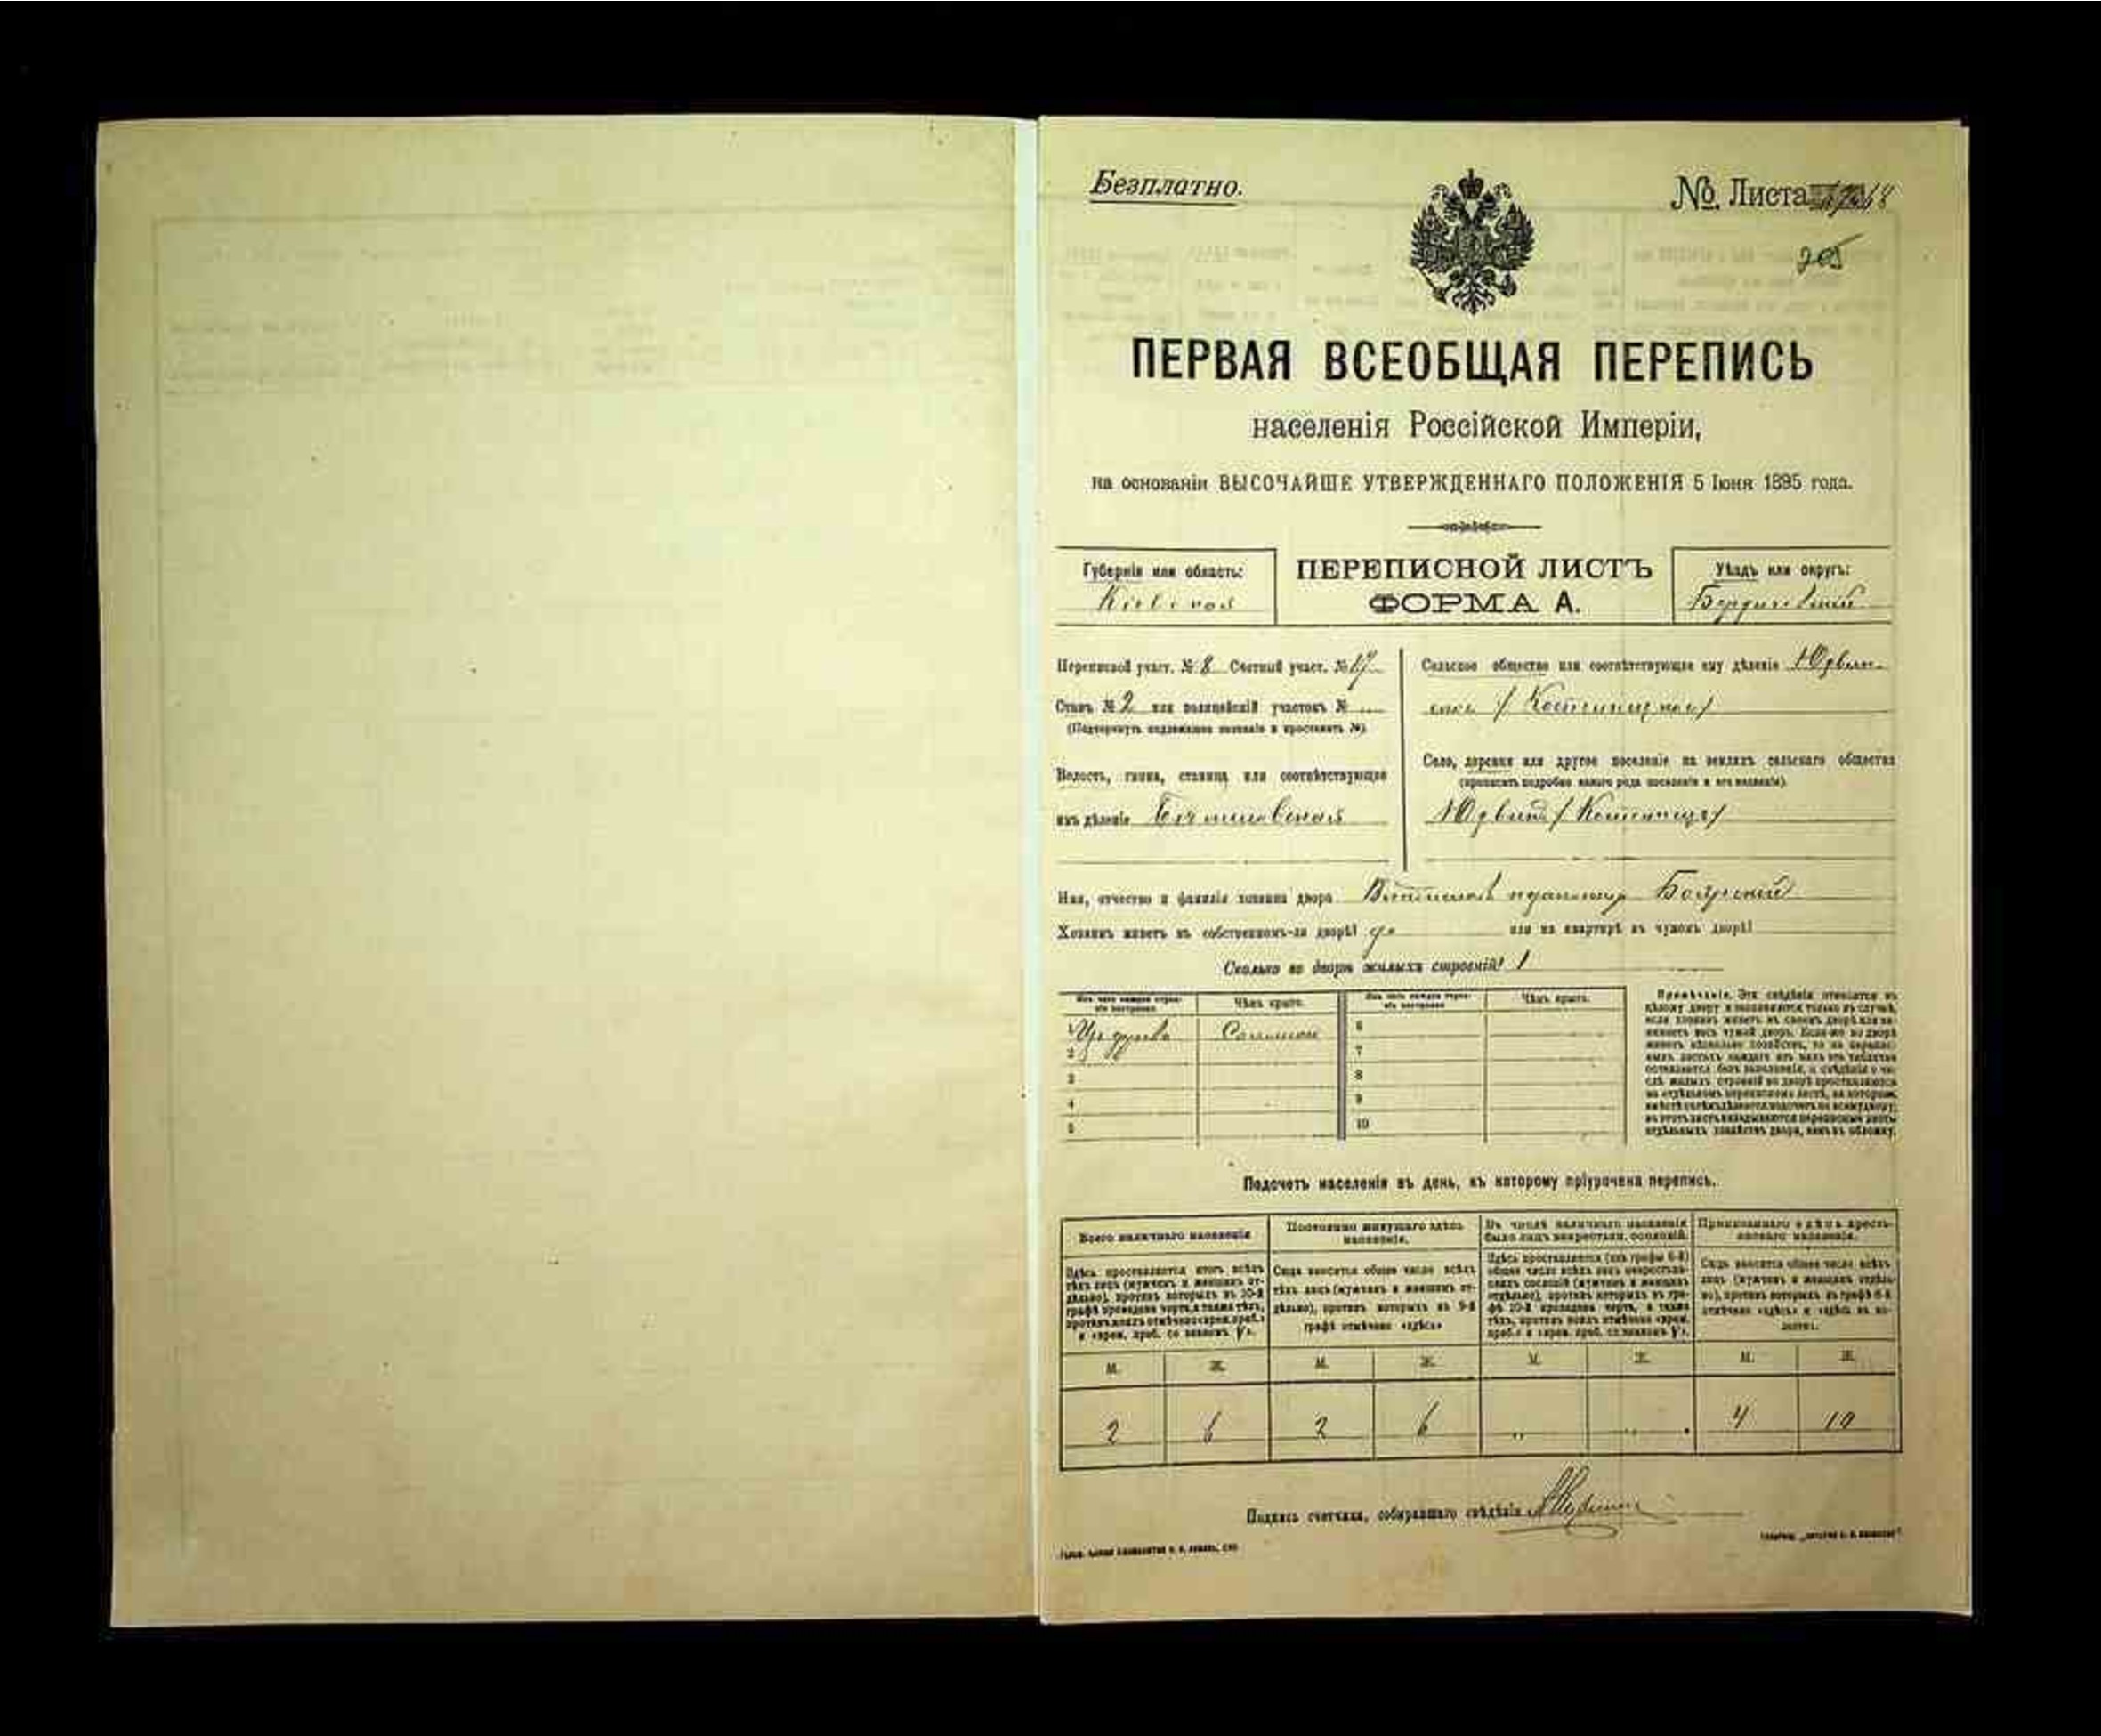 Безплатно.
№ Листа
205
ПЕРВАЯ ВСЕОБЩАЯ ПЕРЕПИСЬ
населенія Россійской Имперіи,
на основаніи ВЫСОЧАЙШЕ УТВЕРЖДЕННАГО ПОЛОЖЕНІЯ 5 Іюня 1895 года.
Губернія или область:
Кіевская
ПЕРЕПИСНОЙ ЛИСТЪ
ФОРМА А.
Уѣздъ или округъ:
Бердичевскій
Переписной участ. № 8 Счетный участ. № 17
Станъ № 2 или полицейскій участокъ №
(Подчеркнуть надлежащее названіе и проставить №).
Волость, гмина, станица или соотвѣтствующее
имъ дѣленіе
Сельское общество или соотвѣтствующее ему дѣленіе
Село, деревня или другое поселеніе на земляхъ сельскаго общества
(прописать подробно какого рода поселеніе и его названіе).
Имя, отчество и фамилія хозяина двора Боярскій
Хозяинъ живетъ въ собственномъ-ли дворѣ? да или на квартирѣ въ чужомъ дворѣ?
Сколько во дворѣ жилыхъ строеній? 1
Изъ чего каждое строеніе построено. Чѣмъ крыто. Изъ чего каждое строеніе построено. Чѣмъ крыто.
1 Изъ дерева Соломою 6
2 7
3 8
4 9
5 10
Примѣчаніе. Эти свѣдѣнія относятся къ
цѣлому двору и заполняются только въ случаѣ,
если хозяинъ живетъ въ своемъ дворѣ или за-
нимаетъ весь чужой дворъ. Если-же во дворѣ
живетъ нѣсколько хозяйствъ, то на перепис-
ныхъ листахъ каждаго изъ нихъ эта табличка
оставляется безъ заполненія, а свѣдѣнія о чи-
слѣ жилыхъ строеній во дворѣ проставляются
на отдѣльномъ переписномъ листѣ, на которомъ
вмѣстѣ съ тѣмъ дѣлается подсчетъ по всему двору;
въ этотъ листъ вкладываются переписные листы
отдѣльныхъ хозяйствъ двора, какъ въ обложку.
Подсчетъ населенія въ день, къ которому пріурочена перепись.
Всего наличнаго населенія
Здѣсь проставляется итогъ всѣхъ
тѣхъ лицъ (мужчинъ и женщинъ от-
дѣльно), противъ которыхъ въ 10-й
графѣ проведена черта, а также тѣхъ,
противъ коихъ отмѣчено «врем. преб.»
и «врем. преб. со знакомъ V».
Постоянно живущаго здѣсь
населенія.
Сюда вносится общее число всѣхъ
тѣхъ лицъ (мужчинъ и женщинъ от-
дѣльно), противъ которыхъ въ 9-й
графѣ отмѣчено «здѣсь»
Въ числѣ наличнаго населенія
было лицъ некрестьян. сословій.
Здѣсь проставляется (изъ графы 6-й)
общее число всѣхъ лицъ некрестьян-
скихъ сословій (мужчинъ и женщинъ
отдѣльно), противъ которыхъ въ гра-
фѣ 10-й проведена черта, а также
тѣхъ, противъ коихъ отмѣчено «врем.
преб.» и «врем. преб. со знакомъ V».
Приписаннаго здѣсь кресть-
янскаго населенія.
Сюда вносится общее число всѣхъ
лицъ (мужчинъ и женщинъ отдѣль-
но), противъ которыхъ въ графѣ 8-й
отмѣчено «здѣсь» и «здѣсь въ во-
лости».
М. Ж. М. Ж. М. Ж. М. Ж.
2 6 2 6 „ „ 4 10
Подпись счетчика, собиравшаго свѣдѣнія